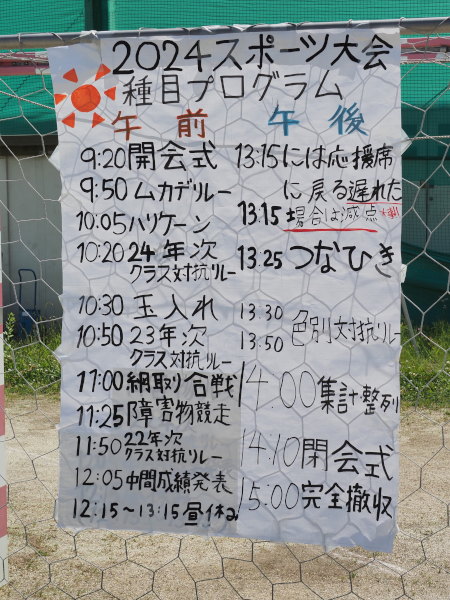 2024スポーツ大会
種目プログラム
午前
9:20 開会式
9:50 ムカデリレー
10:05 ハリケーン
10:20 24年次
クラス対抗リレー
10:30 玉入れ
10:50 23年次
クラス対抗リレー
11:00 綱取り合戦
11:25 障害物競走
11:50 22年次
クラス対抗リレー
12:05 中間成績発表
12:15~13:15 昼休み
午後
13:15には応援席
に戻る遅れた
13.15 場合は減点
13.25 つなひき
13.30
13.50 色別対抗リレー
14.00 集計・整列
14.10 閉会式
15:00 完全撤収